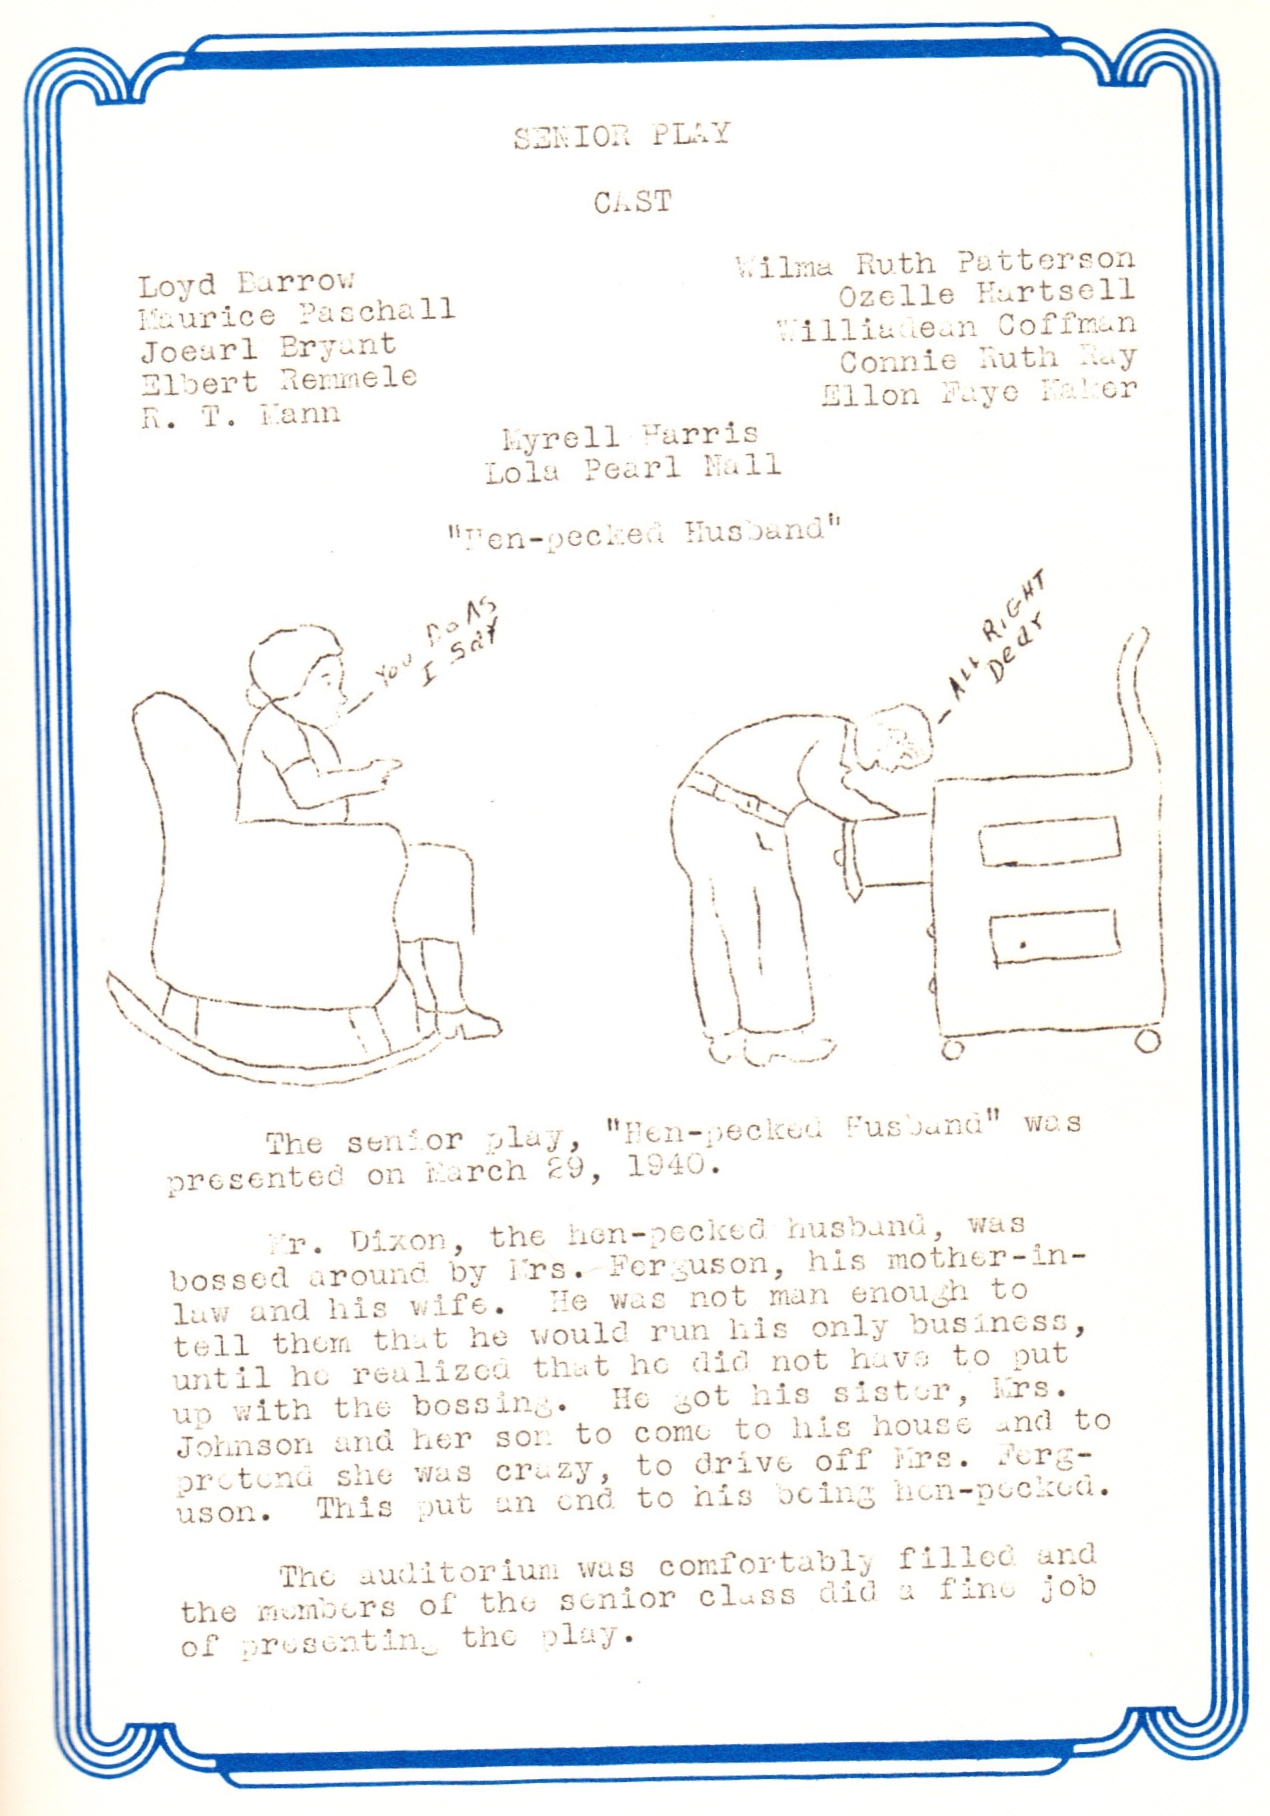 SENIOR PLAY
CAST
Loyd Barrow
Maurice Paschall
Joearl Bryant
Elbert Remmele
R. T. Mann
Wilma Ruth Patterson
Ozelle Hartsell
Williadean Coffman
Connie Ruth Ray
Ellon Faye Maker
Myrell Harris
Lola Pearl Nall
"Hen-pecked Husband"
YOU DO AS
I SAY
ALL RIGHT
Dear
The senior play, "Hen-pecked Husband" was
presented on March 29, 1940.
Mr. Dixon, the hen-pecked husband, was
bossed around by Mrs. Ferguson, his mother-in-
law and his wife. He was not man enough to
tell them that he would run his only business,
until he realized that he did not have to put
up with the bossing. He got his sister, Mrs.
Johnson and her son to come to his house and to
pretend she was crazy, to drive off Mrs. Ferg-
uson. This put an end to his being hen-pecked.
The auditorium was comfortably filled and
the members of the senior class did a fine job
of presenting the play.